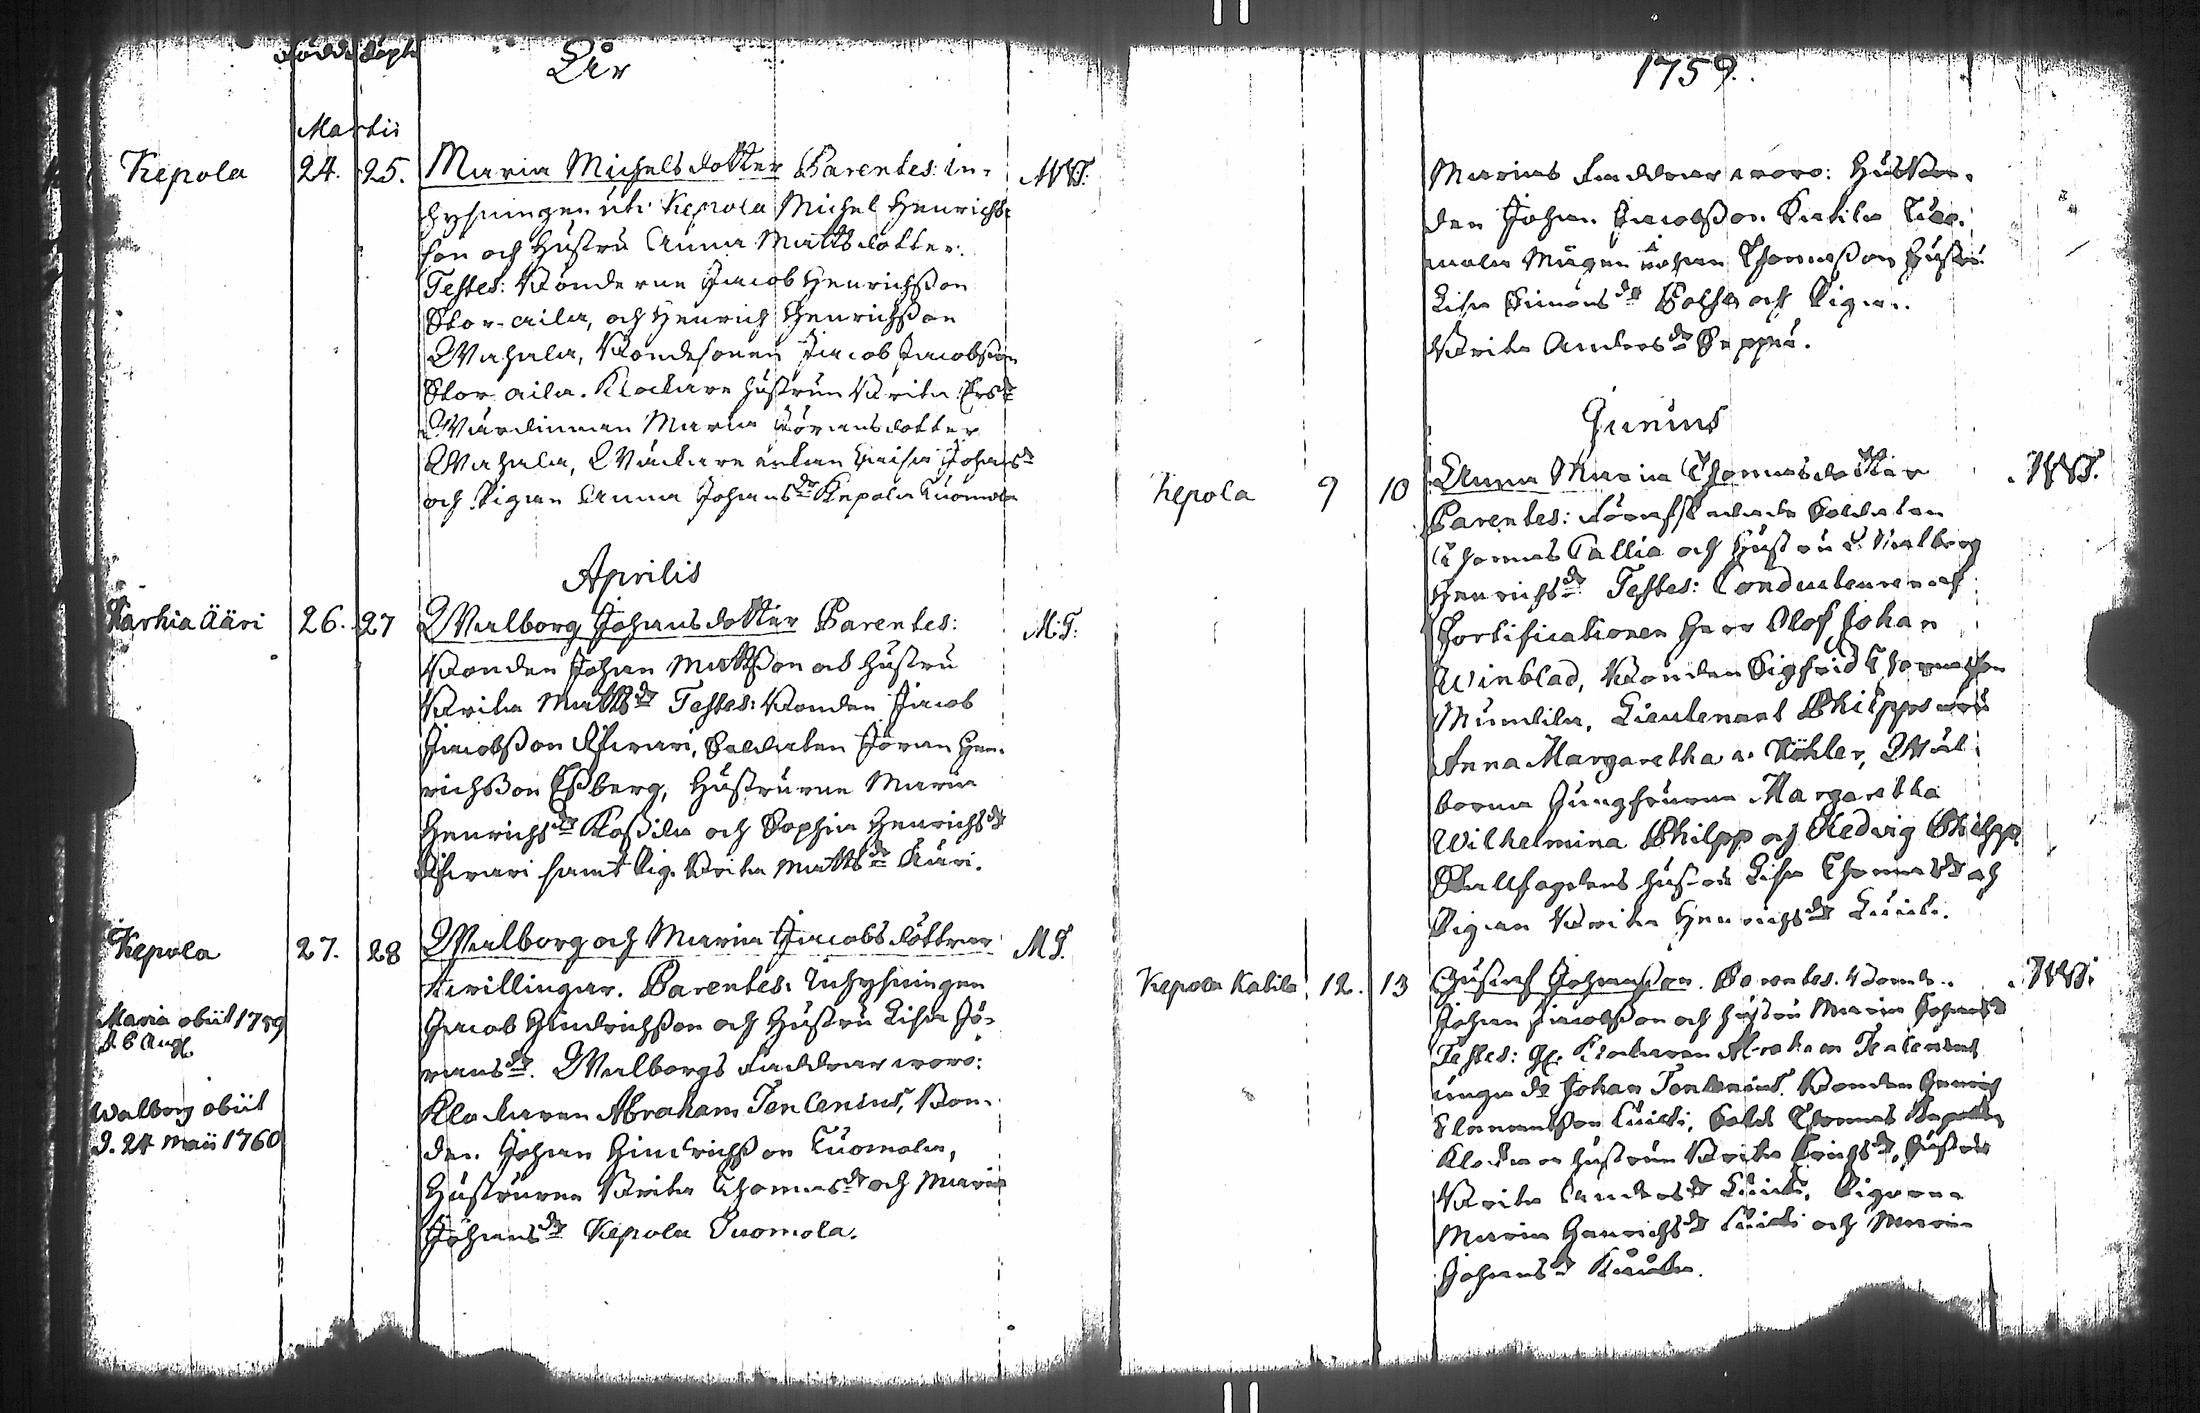 Födde Döpte
År
Martii
Kepola 24. 25. Maria Michelsdotter Parentes: in-
M.T.
hysningen uti Kepola Michel Henrichs-
son och Hustru Anna Mattsdotter.
Testes: Bönderne Jacob Henrichsson
Stor-aila, och Henrich Henrichsson
Wahala, Bondesonen Jacob Jacobsson
Stor aila. Klockare hustrun Brita Ersdr
Wärdinnan Maria Göransdotter
Wahala, Johansdr
och Pigan Anna Johansdr Kepola Tuomola
Aprilis
Karhia Ääri 26. 27 Walborg Johansdotter Parentes:
M.T:
Bonden Johan Mattsson och hustru
Brita Mattsdr Testes: Bonden Jacob
Jacobsson, Soldaten Jöran Hen-
richsson Essberg, Hustrurne Maria
Henrichsdr och Sophia Henrichsdr
samt Pig. Brita Mattsdr Ääri.
Kepola 27. 28 Walborg och Maria Jacobs döttrar
M T.
twillingar. Parentes: Inhysningen
Jacob Hindrichsson och Hustru Lisa Jö-
ransdr. Walborgs Faddrar woro:
Klockaren Abraham Tenlenius, Bon-
den Johan Hindrichsson Tuomola,
Hustrurne Brita Thomasdr och Maria
Johansdr Kepola Tuomola.
Maria obiit 1759
d. 6 Aug.
Walborg obiit
d. 24 Maii 1760
1759.
Marias Faddrar woro: Husbon-
den Johan Jacobsson Katila Tuo-
mola Mågen Johan Thomasson Hustru
Lisa Simonsdr och Pigan
Brita Andersdr Seppä.
Junius
Kepola 9 10 Anna Maria Thomasdotter
Parentes: Soldaten
Thomas Tallia och Hustru Walborg
Henrichsdr Testes: Conducteuren af
Fortificationen Herr Olof Johan
Winblad, Bonden Sigfrid Thomasson
Muntila, Lieutenant Philpps
Anna Margaretha Köhler, Wäl-
borna Jungfrurna Margaretha
Wilhelmina Philpp och Hedvig Philpp
hustru Lisa Thomasdr och
Pigan Brita Henrichsdr
Kepola Katila 12. 13 Gustaf Johansson. Parentes. Bonden
Johan Jacobsson och hustru Maria Johansd
Testes: Klockaren Abraham Tenlenius
unga Johan Tenlenius. Bonden Henrich
Clemetsson, Sold. Thomas
Klockare hustrun Brita Erichsdr, Hustru
Brita Andersdr, Pigorna
Maria Henrichsdr och Maria
Johansd